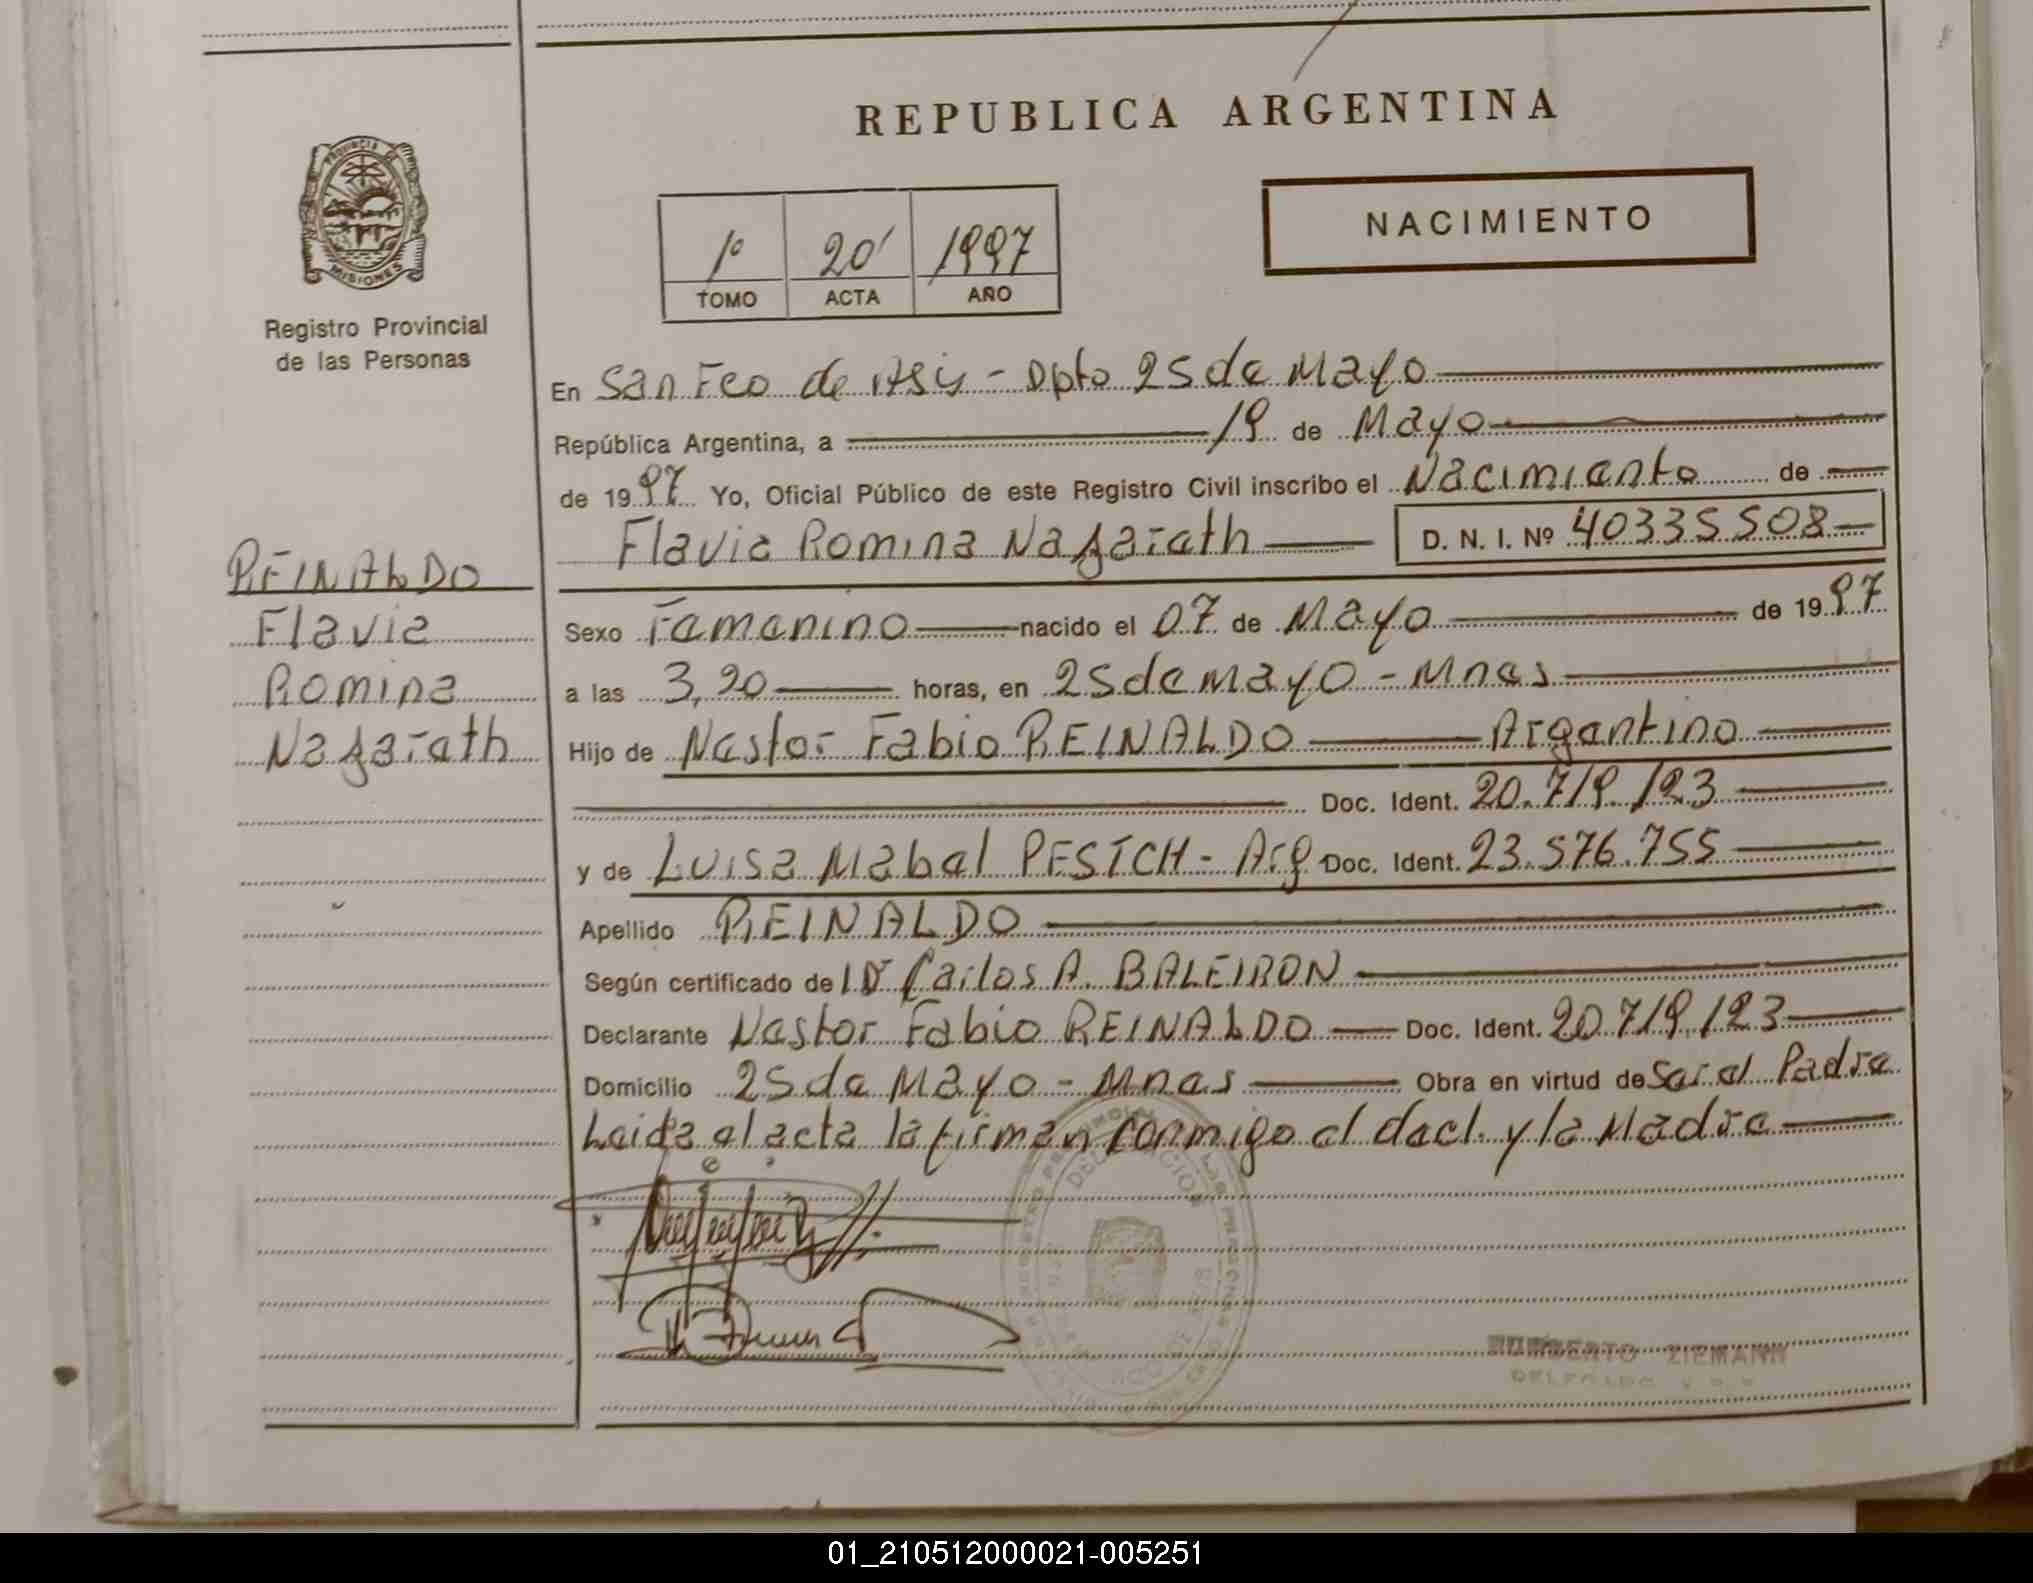 REPUBLICA ARGENTINA
NACIMIENTO
1º 20 1997
TOMO ACTA AÑO
PROVINCIA DE
MISIONES
Registro Provincial
de las Personas
En San Fco de Asis - Dpto 25 de Mayo
República Argentina, a 19 de Mayo
de 1997 Yo, Oficial Público de este Registro Civil inscribo el Nacimiento de
Flavia Romina Nazareth D. N. I. Nº 40335508
REINALDO
Flavia
Romina
Nazareth
Sexo Femenino nacido el 07 de Mayo de 1997
a las 3,20 horas, en 25 de Mayo - Mnes
Hijo de Nestor Fabio REINALDO Argentino
Doc. Ident. 20.719.123
y de Luisa Mabel PESICH - Arg Doc. Ident. 23.576.755
Apellido REINALDO
Según certificado de l Dr Carlos A. BALEIRON
Declarante Nestor Fabio REINALDO Doc. Ident. 20719.123
Domicilio 25 de Mayo - Mnes Obra en virtud de Ser el Padre
Leida el acta la firman conmigo el decl. y la Madre
HUMBERTO ZIEMANN
DELEGADO
01_210512000021-005251